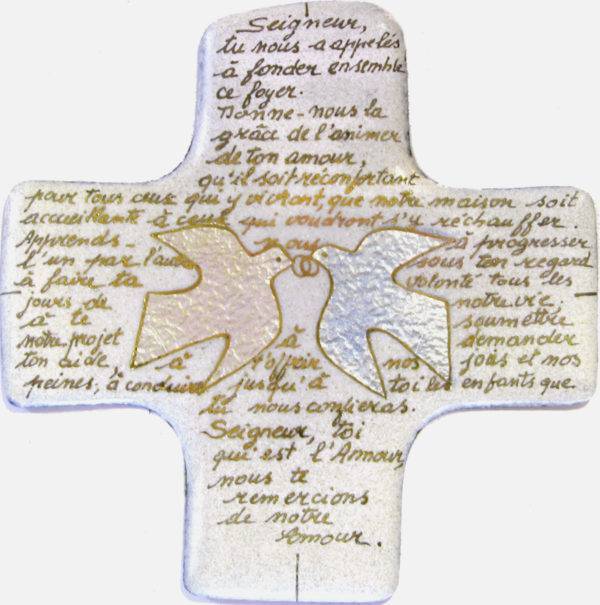 Seigneur,
tu nous a appelés
à fonder ensemble
ce foyer.
Donne-nous la
grâce de l'animer
de ton amour,
qu'il soit réconfortant
pour tous ceux qui y vivront, que notre maison soit
accueillante à ceux qui voudront s'y réchauffer.
Apprends- nous à progresser
l'un par l'autre sous ton regard
à faire ta volonté tous les
jours de notre vie,
à te soumettre
notre projet à demander
ton aide, à t'offrir nos joies et nos
peines, à conduire jusqu'à toi les enfants que
tu nous confieras.
Seigneur, toi
qui est l'Amour,
nous te
remercions
de notre
Amour.